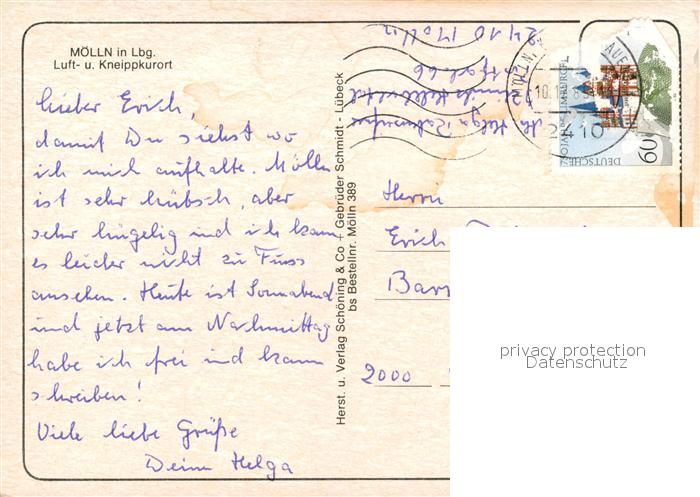 MÖLLN in Lbg.
Luft- u. Kneippkurort
Lieber Erich,
damit Du siehst wo
ich mich aufhalte. Mölln
ist sehr hübsch, aber
sehr hügelig und ich kann
es leider nicht zu Fuss
ansehen. Heute ist Sonnabend
und jetzt am Nachmittag
habe ich frei und kann
schreiben!
Viele liebe Grüße
Deine Helga
Herst. u. Verlag Schöning & Co + Gebrüder Schmidt - Lübeck
bs Bestellnr. Mölln 389
2410 Mölln
Helga
2410
DEUTSCHE
60
Herrn
Erich
Barr
2000
privacy protection
Datenschutz